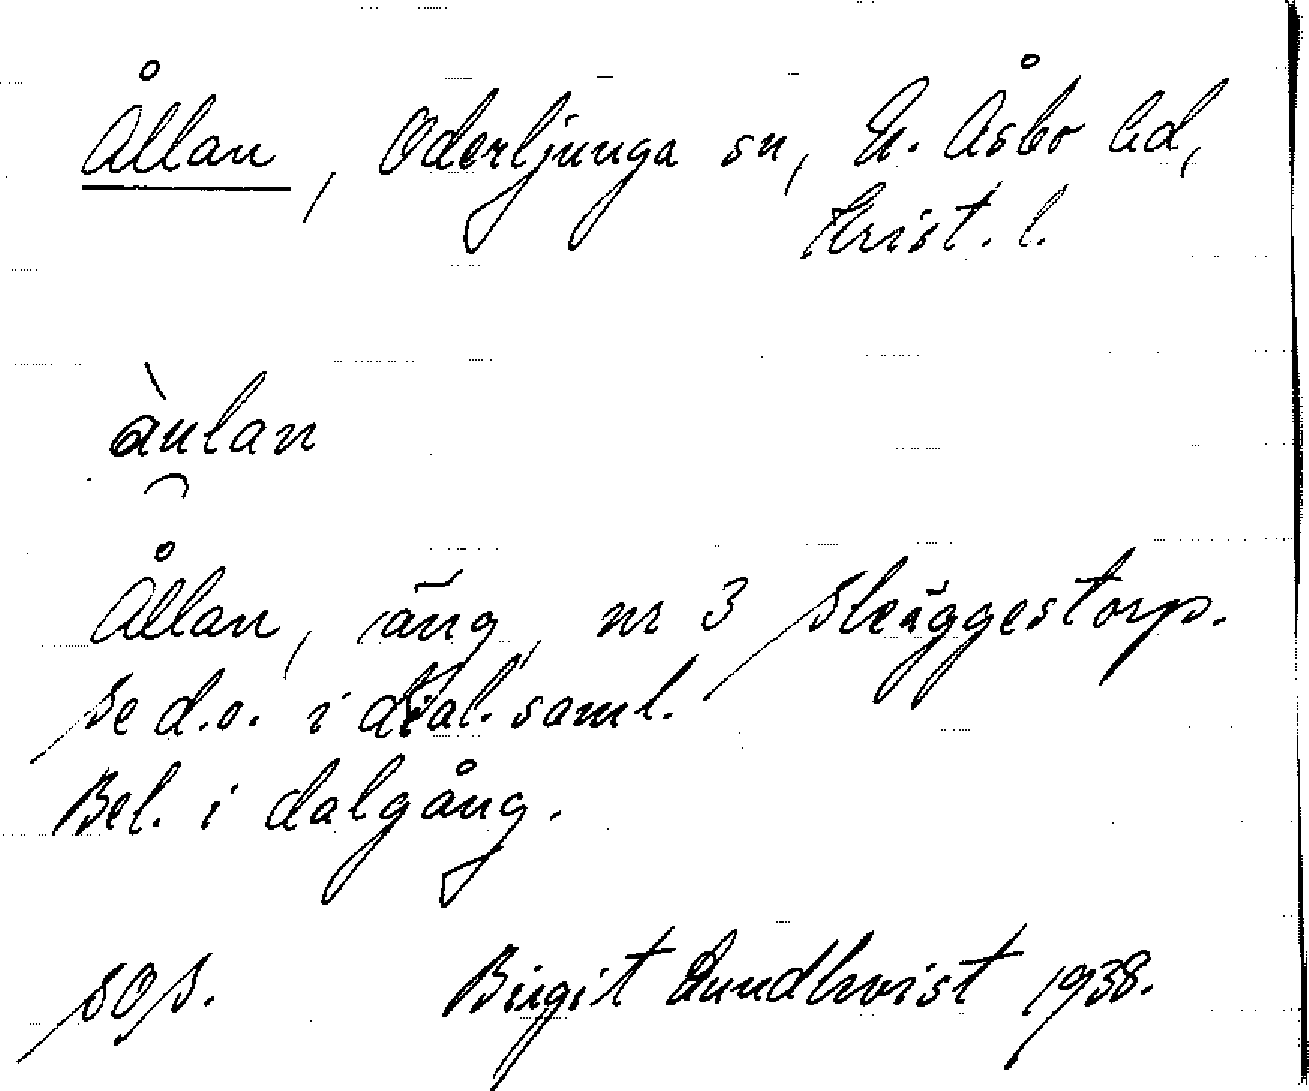 Ållan, Oderljunga sn, N. Åsbo hd,
Krist. l.
àulan
Ållan, äng, nr 3 Skäggestorp.
Se d.o. i dial. saml.
Bel. i dalgång.
SOS. Birgit Lundkvist 1938.